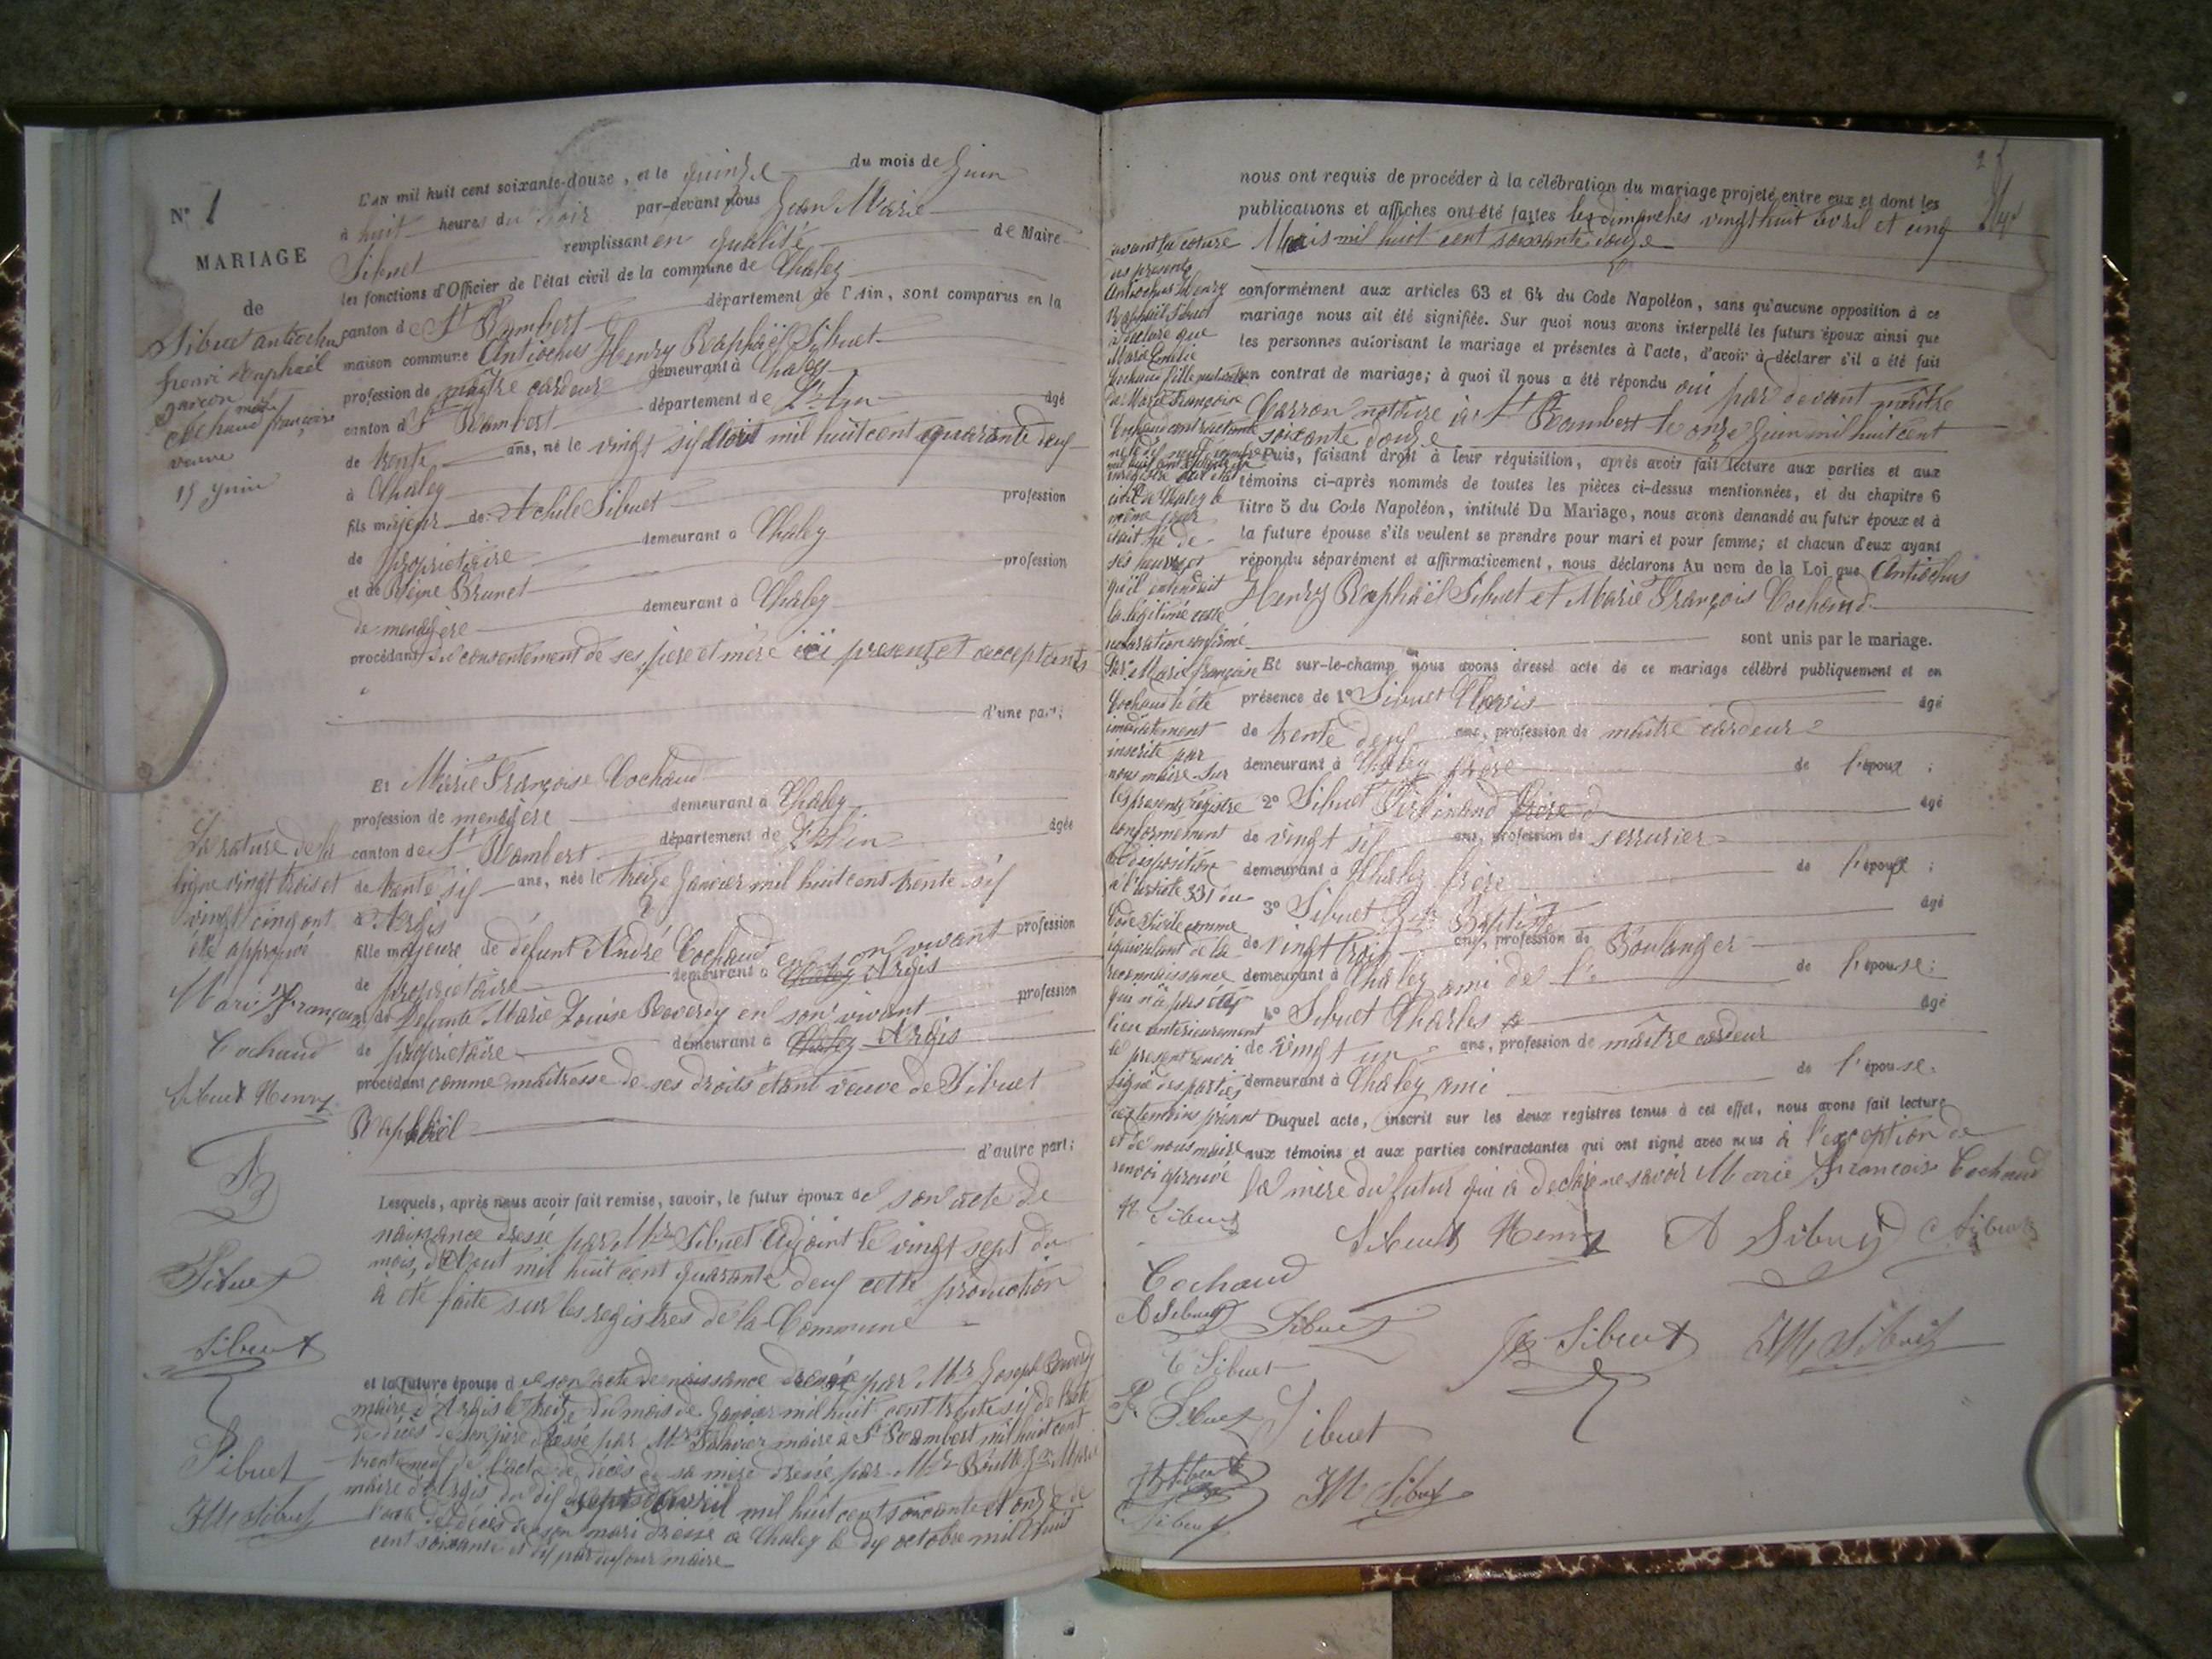 N° 1
MARIAGE
de
Sibuet antiochus
henri Raphaël
garçon
Cochaud françoise
veuve
15 juin
L'AN mil huit cent soixante-douze, et le quinze du mois de Juin
à huit heures du soir par-devant nous Jean Marie
Sibuet remplissant en qualité de Maire
les fonctions d'Officier de l'état civil de la commune de Chaley
canton de St Rambert département de l'Ain, sont comparus en la
maison commune Antiochus Henry Raphaël Sibuet
profession de maître cardeur demeurant à Chaley
canton d St Rambert département de L'Ain âgé
de trente ans, né le vingt six Aout mil huit cent quarante deux
à Chaley
fils majeur de Achile Sibuet profession
de proprietaire demeurant à Chaley
et de Reine Brunet profession
de menagère demeurant à Chaley
procédant du consentement de ses père et mère ici present et acceptants
d'une part;
Et Marie Françoise Cochaud
profession de menagère demeurant à Chaley
canton de St Rambert département de L'Ain âgée
de trente six ans, née le treize Janvier mil huit cent trente six
à Argis
fille majeure de défunt André Cochaud en son vivant profession
de proprietaire demeurant à Chaley Argis
et de Defunte Marie Louise Reverdy en son vivant profession
de proprietaire demeurant à Chaley Argis
procédant comme maîtresse de ses droits étant veuve de Sibuet
Raphaël
d'autre part;
La rature de la
ligne vingt trois et
vingt cinq ont
été approuvé
Marie Françoise
Cochaud
Sibuet Henry
Sibuet
Sibuet
Sibuet
JM Sibuet
Lesquels, après nous avoir fait remise, savoir, le futur époux de son acte de
naissance dressé par Mr Sibuet Adjoint le vingt sept du
mois d'Aout mil huit cent quarante deux cette production
à été faite sur les registres de la Commune
et la future épouse de son acte de naissance dressé par Mr Joseph Reverdy
maire d'Argis le treize du mois de Janvier mil huit cent trente six de l'acte
de décès de son père dressé par Mr maire à St Rambert mil huit cent
trente neuf de l'acte de décès de sa mère dressé par Mr
maire d'Argis du dix sept d'Avril mil huit cent soixante et onze de
l'acte de décès de son mari dressé à Chaley le dix octobre mil huit
cent soixante et dix par maire
nous ont requis de procéder à la célébration du mariage projeté entre eux et dont les
publications et affiches ont été faites les dimanches vingt huit avril et cinq
Mais mil huit cent soixante douze
conformément aux articles 63 et 64 du Code Napoléon, sans qu'aucune opposition à ce
mariage nous ait été signifiée. Sur quoi nous avons interpellé les futurs époux ainsi que
les personnes autorisant le mariage et présentes à l'acte, d'avoir à déclarer s'il a été fait
un contrat de mariage; à quoi il nous a été répondu oui par devant maître
Carron notaire à St Rambert le onze Juin mil huit cent
soixante douze
Puis, faisant droit à leur réquisition, après avoir fait lecture aux parties et aux
témoins ci-après nommés de toutes les pièces ci-dessus mentionnées, et du chapitre 6
titre 5 du Code Napoléon, intitulé Du Mariage, nous avons demandé au futur époux et à
la future épouse s'ils veulent se prendre pour mari et pour femme; et chacun d'eux ayant
répondu séparément et affirmativement, nous déclarons Au nom de la Loi que Antiochus
Henry Raphaël Sibuet et Marie François Cochaud
sont unis par le mariage.
Et sur-le-champ nous avons dressé acte de ce mariage célébré publiquement et en
présence de 1° Sibuet Clovis âgé
de trente deux ans, profession de maître cardeur
demeurant à Chaley frère de l'époux;
2° Sibuet Ferdinand frère d âgé
de vingt six ans, profession de serrurier
demeurant à Chaley frère de l'époux;
3° Sibuet Baptiste âgé
de vingt trois ans, profession de Boulanger
demeurant à Chaley ami de l' de l'épouse;
4° Sibuet Charles âgé
de vingt un ans, profession de maître cardeur
demeurant à Chaley ami de l'épouse.
Duquel acte, inscrit sur les deux registres tenus à cet effet, nous avons fait lecture
aux témoins et aux parties contractantes qui ont signé avec nous à l'exception de
la mère du futur qui à déclaré ne savoir Marie François Cochaud
Sibuet Henry A Sibuet C Sibuet
Sibuet JB Sibuet JM Sibuet
avant la coture
des presents
Antiochus Henry
Raphaël Sibuet
à declaré que
Marie Emélie
Cochaud fille
de Marie Françoise
Cochaud
civil de Chaley le
même jour
était né de
ses
qu'il entendait
la légitimé cette
declaration confirmé
par Marie françoise
Cochaud à été
imédiatement
inscrite par
nous maire sur
les presents registre
conformement
à l'article 331 du
Code Civile comme
équivalant de la
reconnaissance
qui n'a pas été
lieu antérieurement
le present renvoi
signé des parties
des temoins présent
et de nous maire
renvoi aprouvé
H Sibuet
Cochaud
A Sibuet
C Sibuet
Sibuet
Sibuet
JB Sibuet
C Sibuet
JM Sibuet